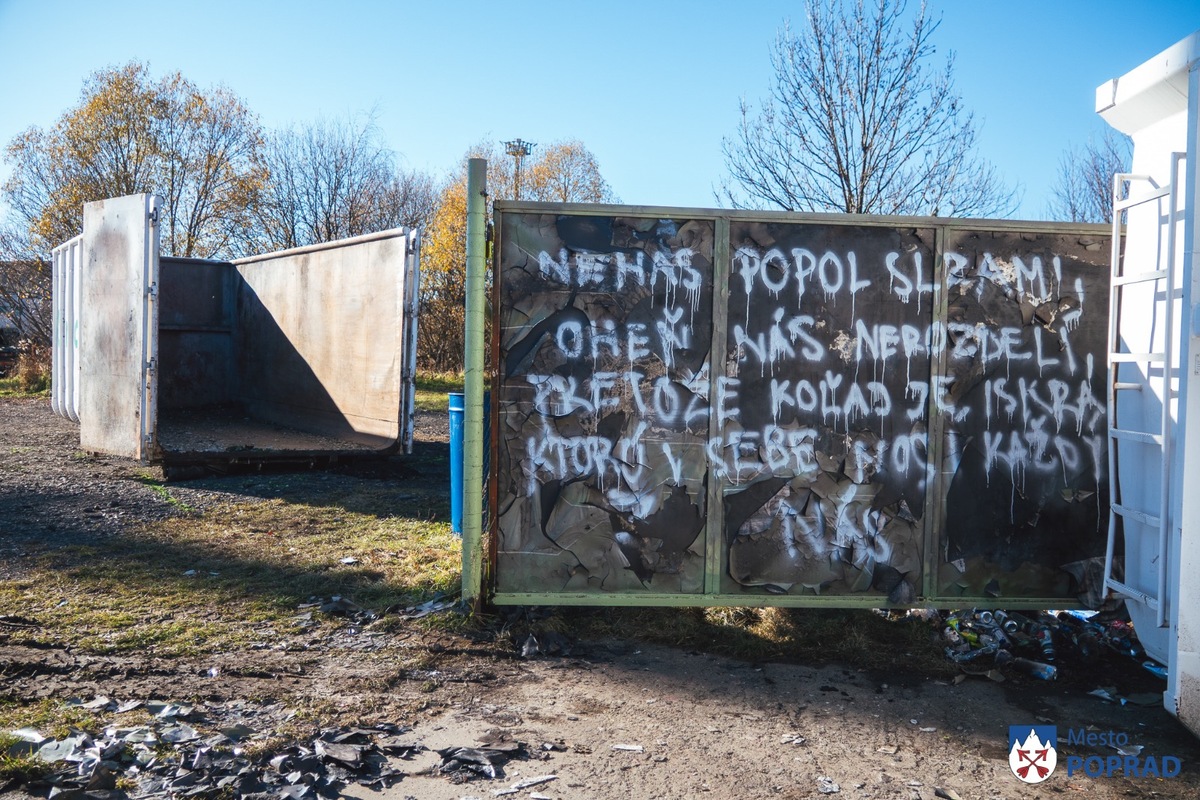 NEHAS POPOL SLZAMI,
OHEŇ NÁS NEROZDELÍ,
PRETOŽE KOĽAJ JE ISKRA,
KTORÚ V SEBE NOSÍ KAŽDÝ
Z NÁS
Mesto
POPRAD